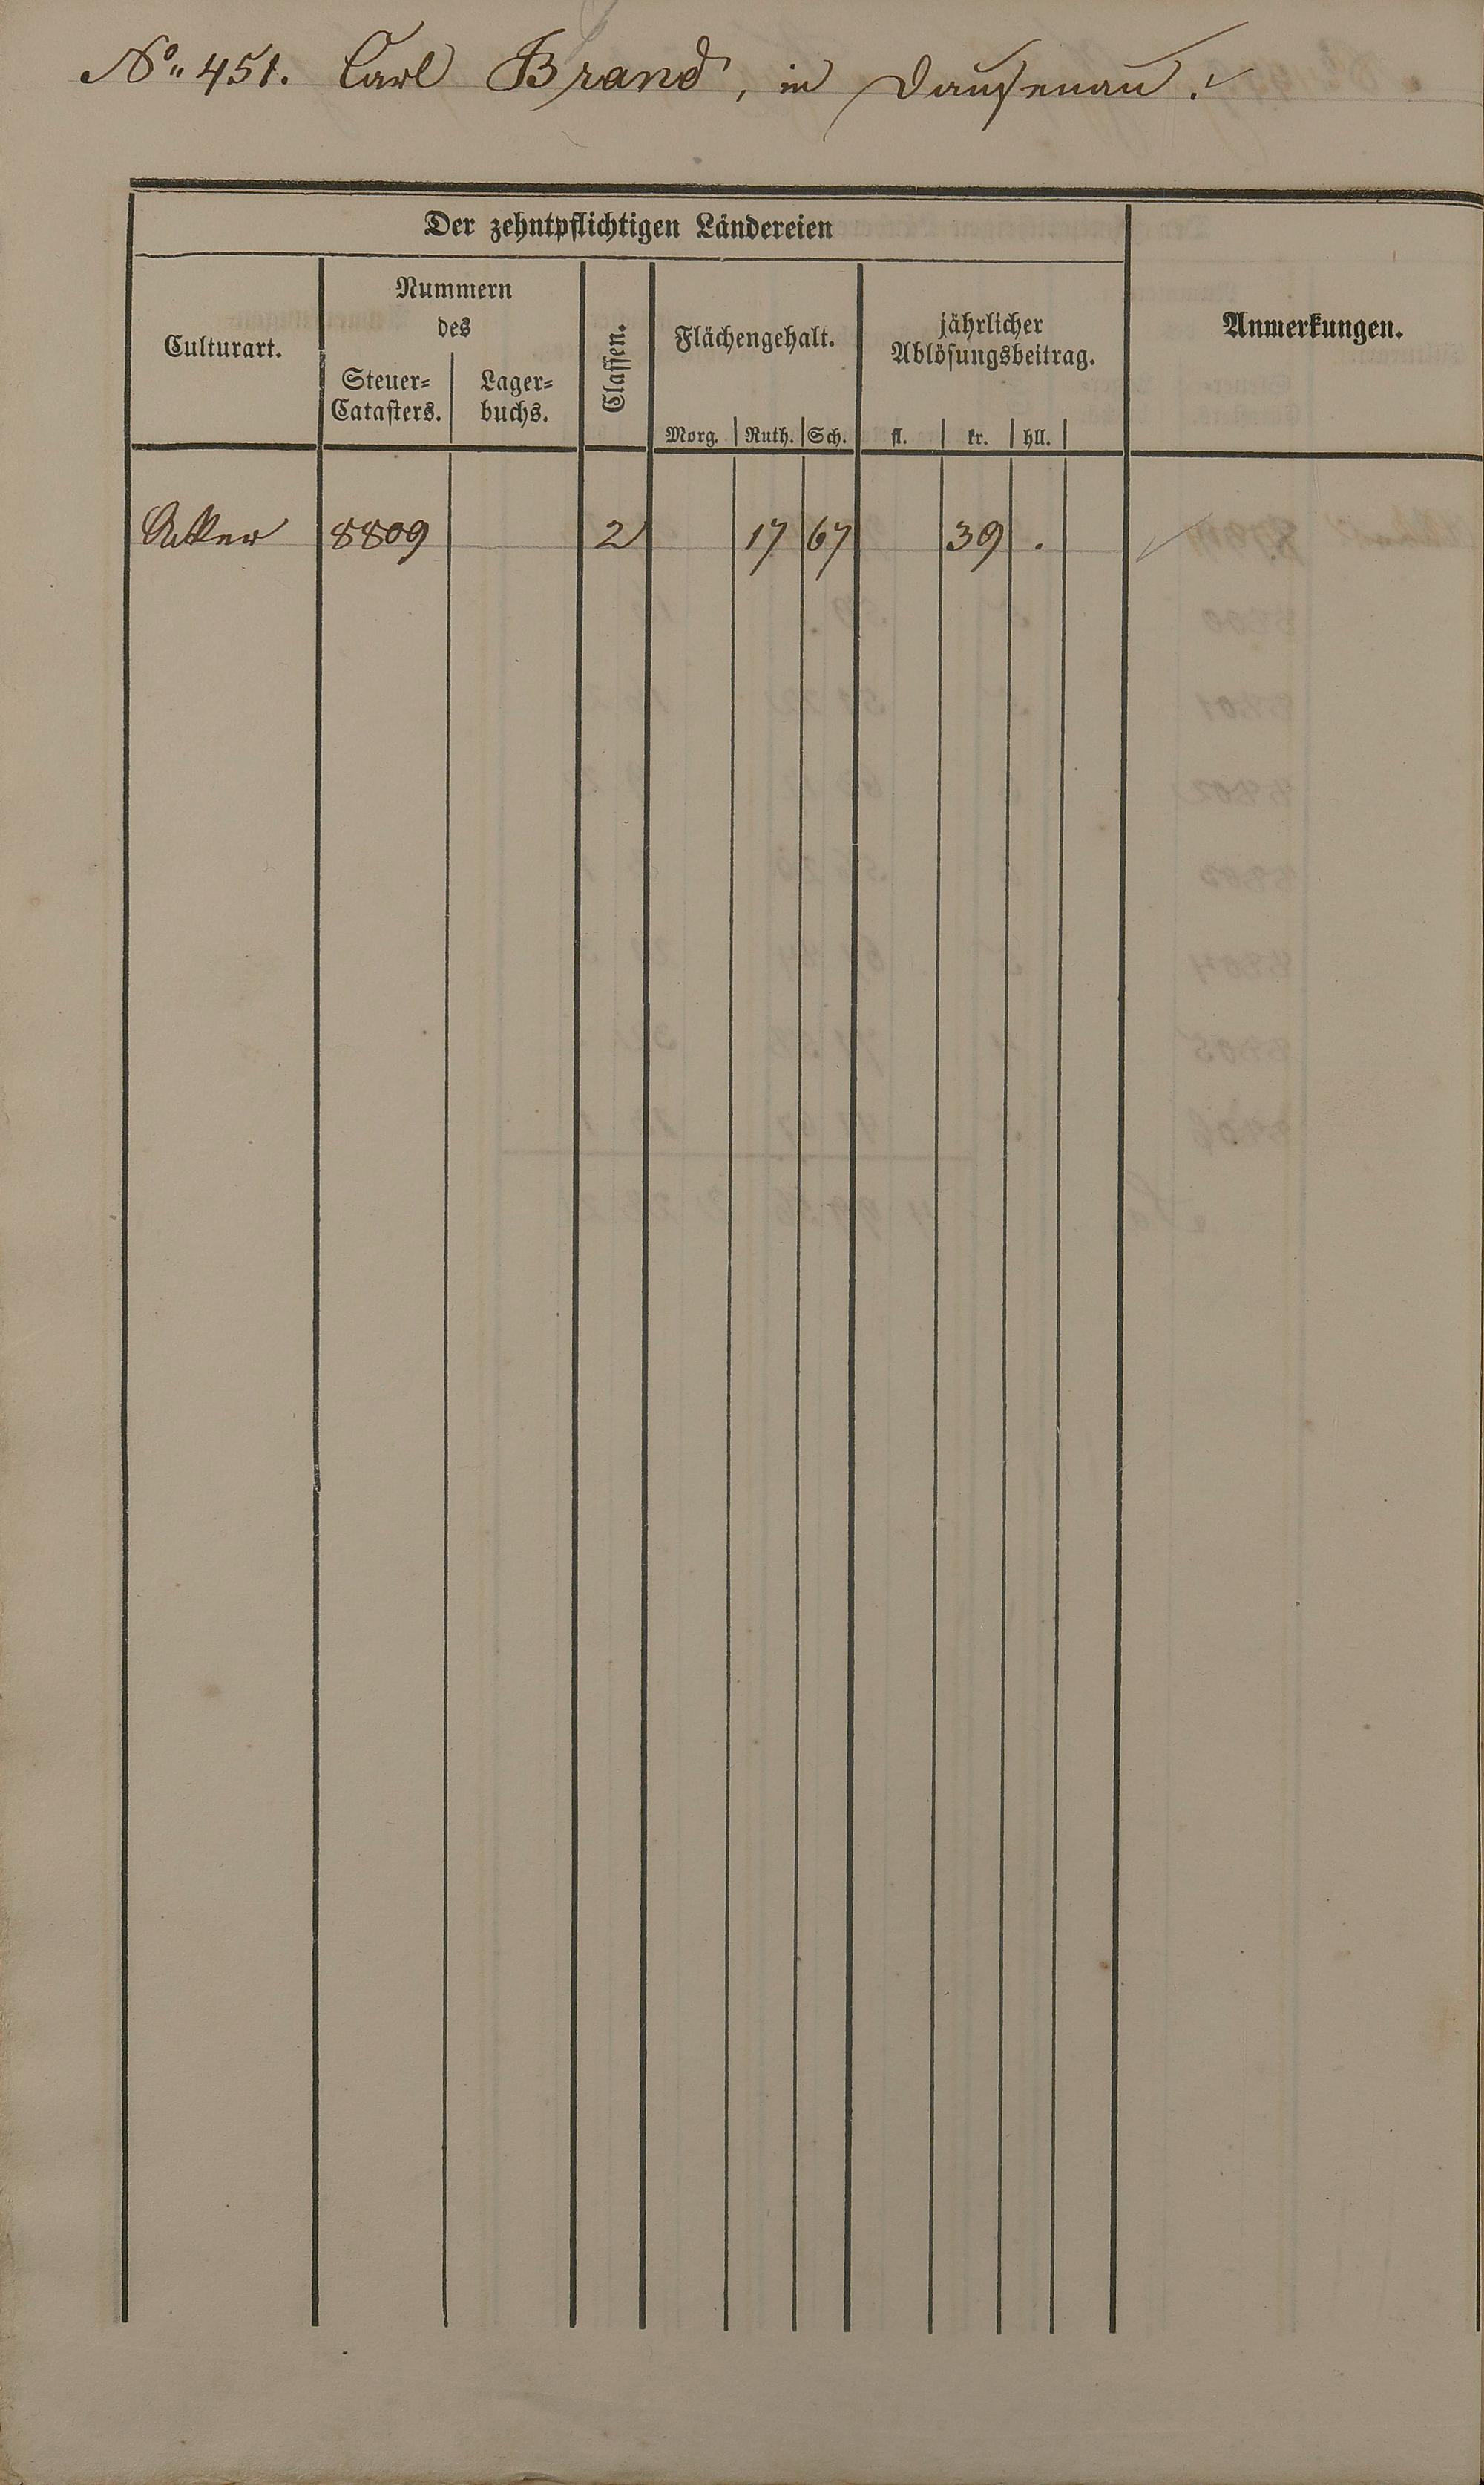 No 451. Carl Brand, in Dausenau.
Der zehntpflichtigen Ländereien
Culturart.
Nummern
des
Steuer-
Catasters.
Lager-
buchs.
Classen.
Flächengehalt.
Morg. Ruth. Sch.
jährlicher
Ablösungsbeitrag.
fl. kr. hll.
Anmerkungen.
Acker 8809 2 17 67 39 .